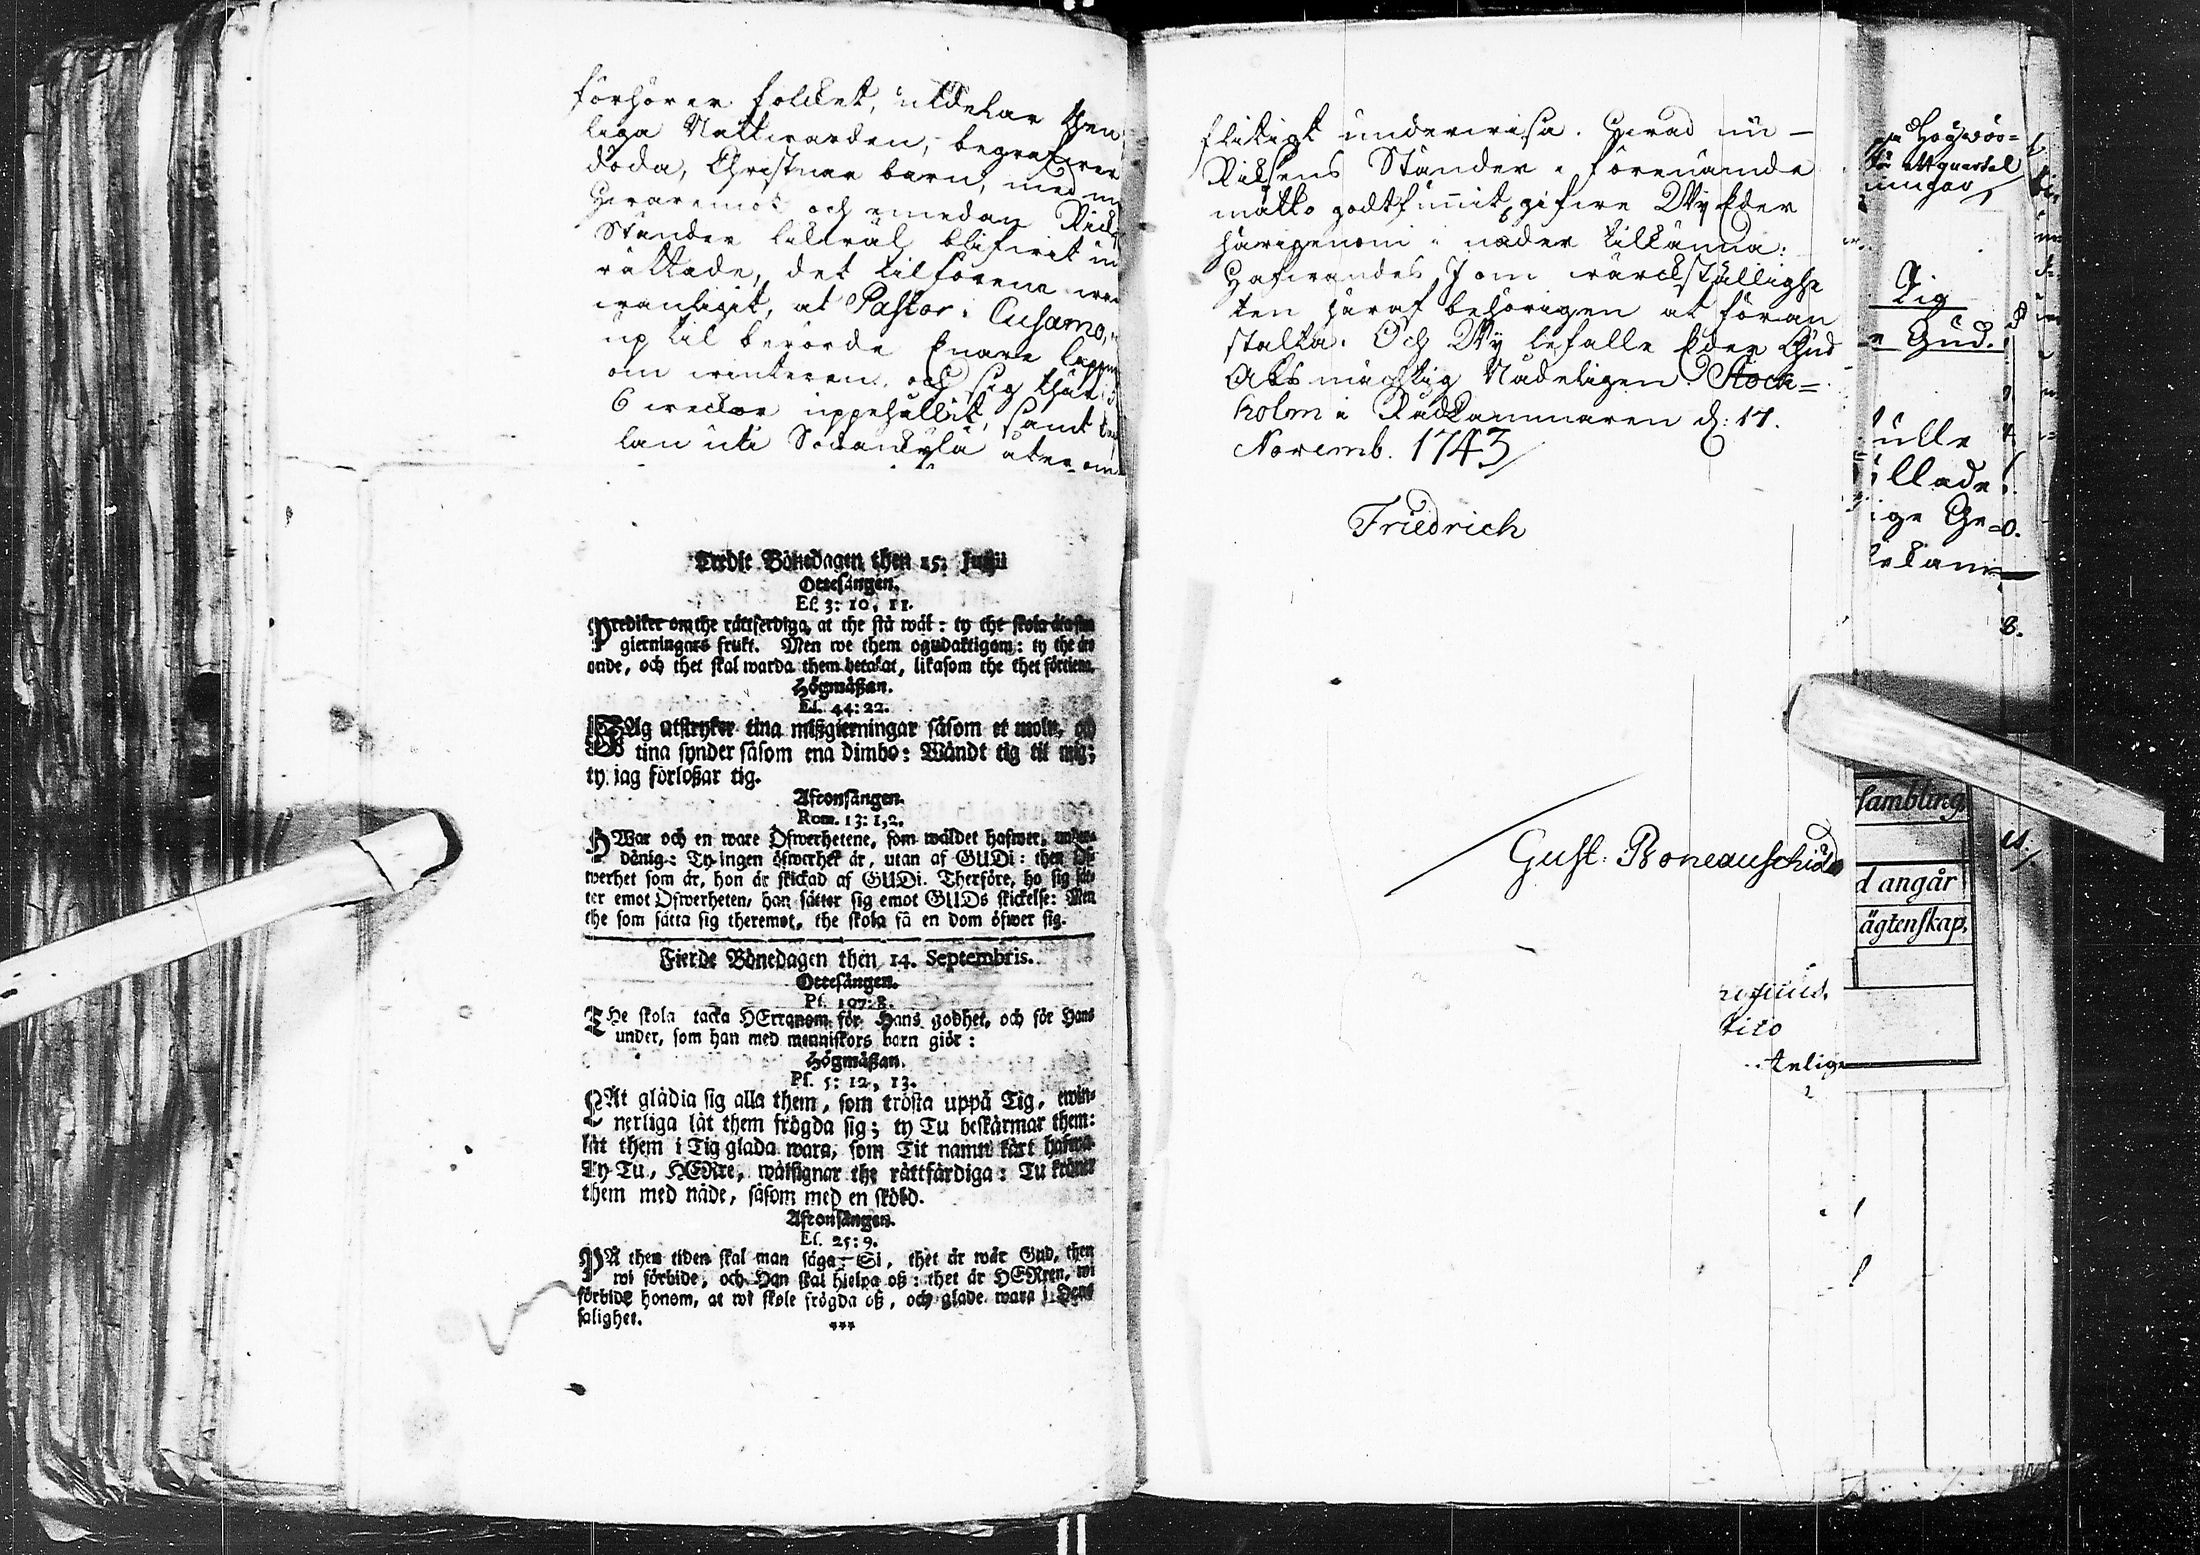 förhörer folcket, utdelar Hen
liga Nattwarden, begrafwer
döda, Christnar barn, med m
Hwaremot och emedan Rick
Ständer likwäl blifwit
rättade, det tilförene
wanligit, at Pastor i Cusamo,
up til berörde Enare lappm
om winteren, och sig thär
6 weckor uppehållit, samt
lan uti Sodankylä åter om
Tredie Bönedagen then 15. Julii
Ottesången.
Es. 3: 10, 11.
Prediker om the rättferdiga, at the stå wäl: ty the skola äta sin
gierningars frukt. Men we them ogudaktigom: ty the äro
onde, och thet skal warda them betalat, likasom the thet förtiena.
Högmäßan.
Es. 44: 22.
JAg utstryker tina mißgierningar såsom et moln, och
tina synder såsom ena dimbo: Wändt tig til mig;
ty jag förloßar tig.
Aftonsången.
Rom. 13: 1,2.
HWar och en ware Öfwerhetene, som wäldet hafwer, under-
dånig: Ty ingen öfwerhet är, utan af GUDi: then Öf-
werhet som är, hon är skickad af GUDi. Therföre, ho sig sät-
ter emot Öfwerheten, han sätter sig emot GUDs skickelse: Men
the som sätta sig theremot, the skola få en dom öfwer sig.
Fierde Bönedagen then 14. Septembris.
Ottesången.
Ps. 107: 8.
THe skola tacka HErranom för Hans godhet, och för Hans
under, som han med menniskors barn giör:
Högmäßan.
Ps. 5: 12, 13.
LÅt glädia sig alla them, som trösta uppå Tig, ewin-
nerliga låt them frögda sig; ty Tu beskärmar them:
låt them i Tig glada wara, som Tit namn kärt hafwa.
Ty Tu, HERre, wälsignar the rättfärdiga: Tu kröner
them med nåde, såsom med en sköld.
Aftonsången.
Es. 25: 9.
PÅ then tiden skal man säga: Si, thet är wår Gud, then
wi förbide, och Han skal hielpa oß: thet är HERren, wi
förbide honom, at wi skole frögda oß, och glade wara i Hans
salighet.
***
flitigt underwisa. Hwad nu
Riksens Ständer i förenämde
måtto godtfunnit, gifwe Wy Eder
härigenom i nåder tilkänna:
Hafwandes I om wärckställighe
ten häraf behörigen at föran
stalta. Och Wy befalle Eder Gud
Alsmächtig Nådeligen. Stock=
holm i Rådkammaren d: 17.
Novemb. 1743
Friedrich
Gust: Boneauschiöld
Högwör=
ett quartal
ningar
Tig
Gud.
ulle
llade
ige Ge=
sambling
d angår
ägtenskap.